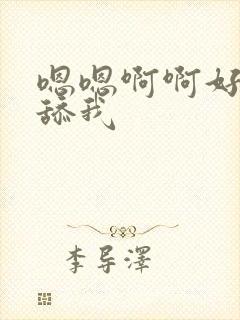 嗯嗯啊啊好
舔我
李导泽